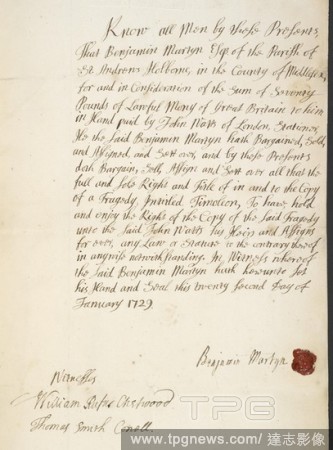 Know all Men by these Presents
That Benjamin Martyn Esqr. of the Parish of
St. Andrews Holborne, in the County of Middlesex,
for and in Consideration of the Sum of Seventy
Pounds of Lawful Mony of Great Britain to him
in Hand paid by John Watts of London, Stationer,
He the said Benjamin Martyn hath Bargained, Sold,
and Assigned, and Sett over, and by these Presents
doth Bargain, Sell, Assign and Sett over all that the
full and Sole Right and Title of in and to the Copy
of a Tragedy Intitled Timoleon, To have, hold
and enjoy the Right of the Copy of the Said Tragedy
unto the Said John Watts his Heirs and Assigns
for ever, any Law or Statute to the contrary hereof
in anywise notwithstanding. In Witness whereof
the Said Benjamin Martyn hath hereunto Set
his Hand and Seal this twenty second Day of
January 1729.
Benjamin Martyn
Witness
William Rufus Chetwood
Thomas Smith
TPG
www.tpgnews.com / 達志影像